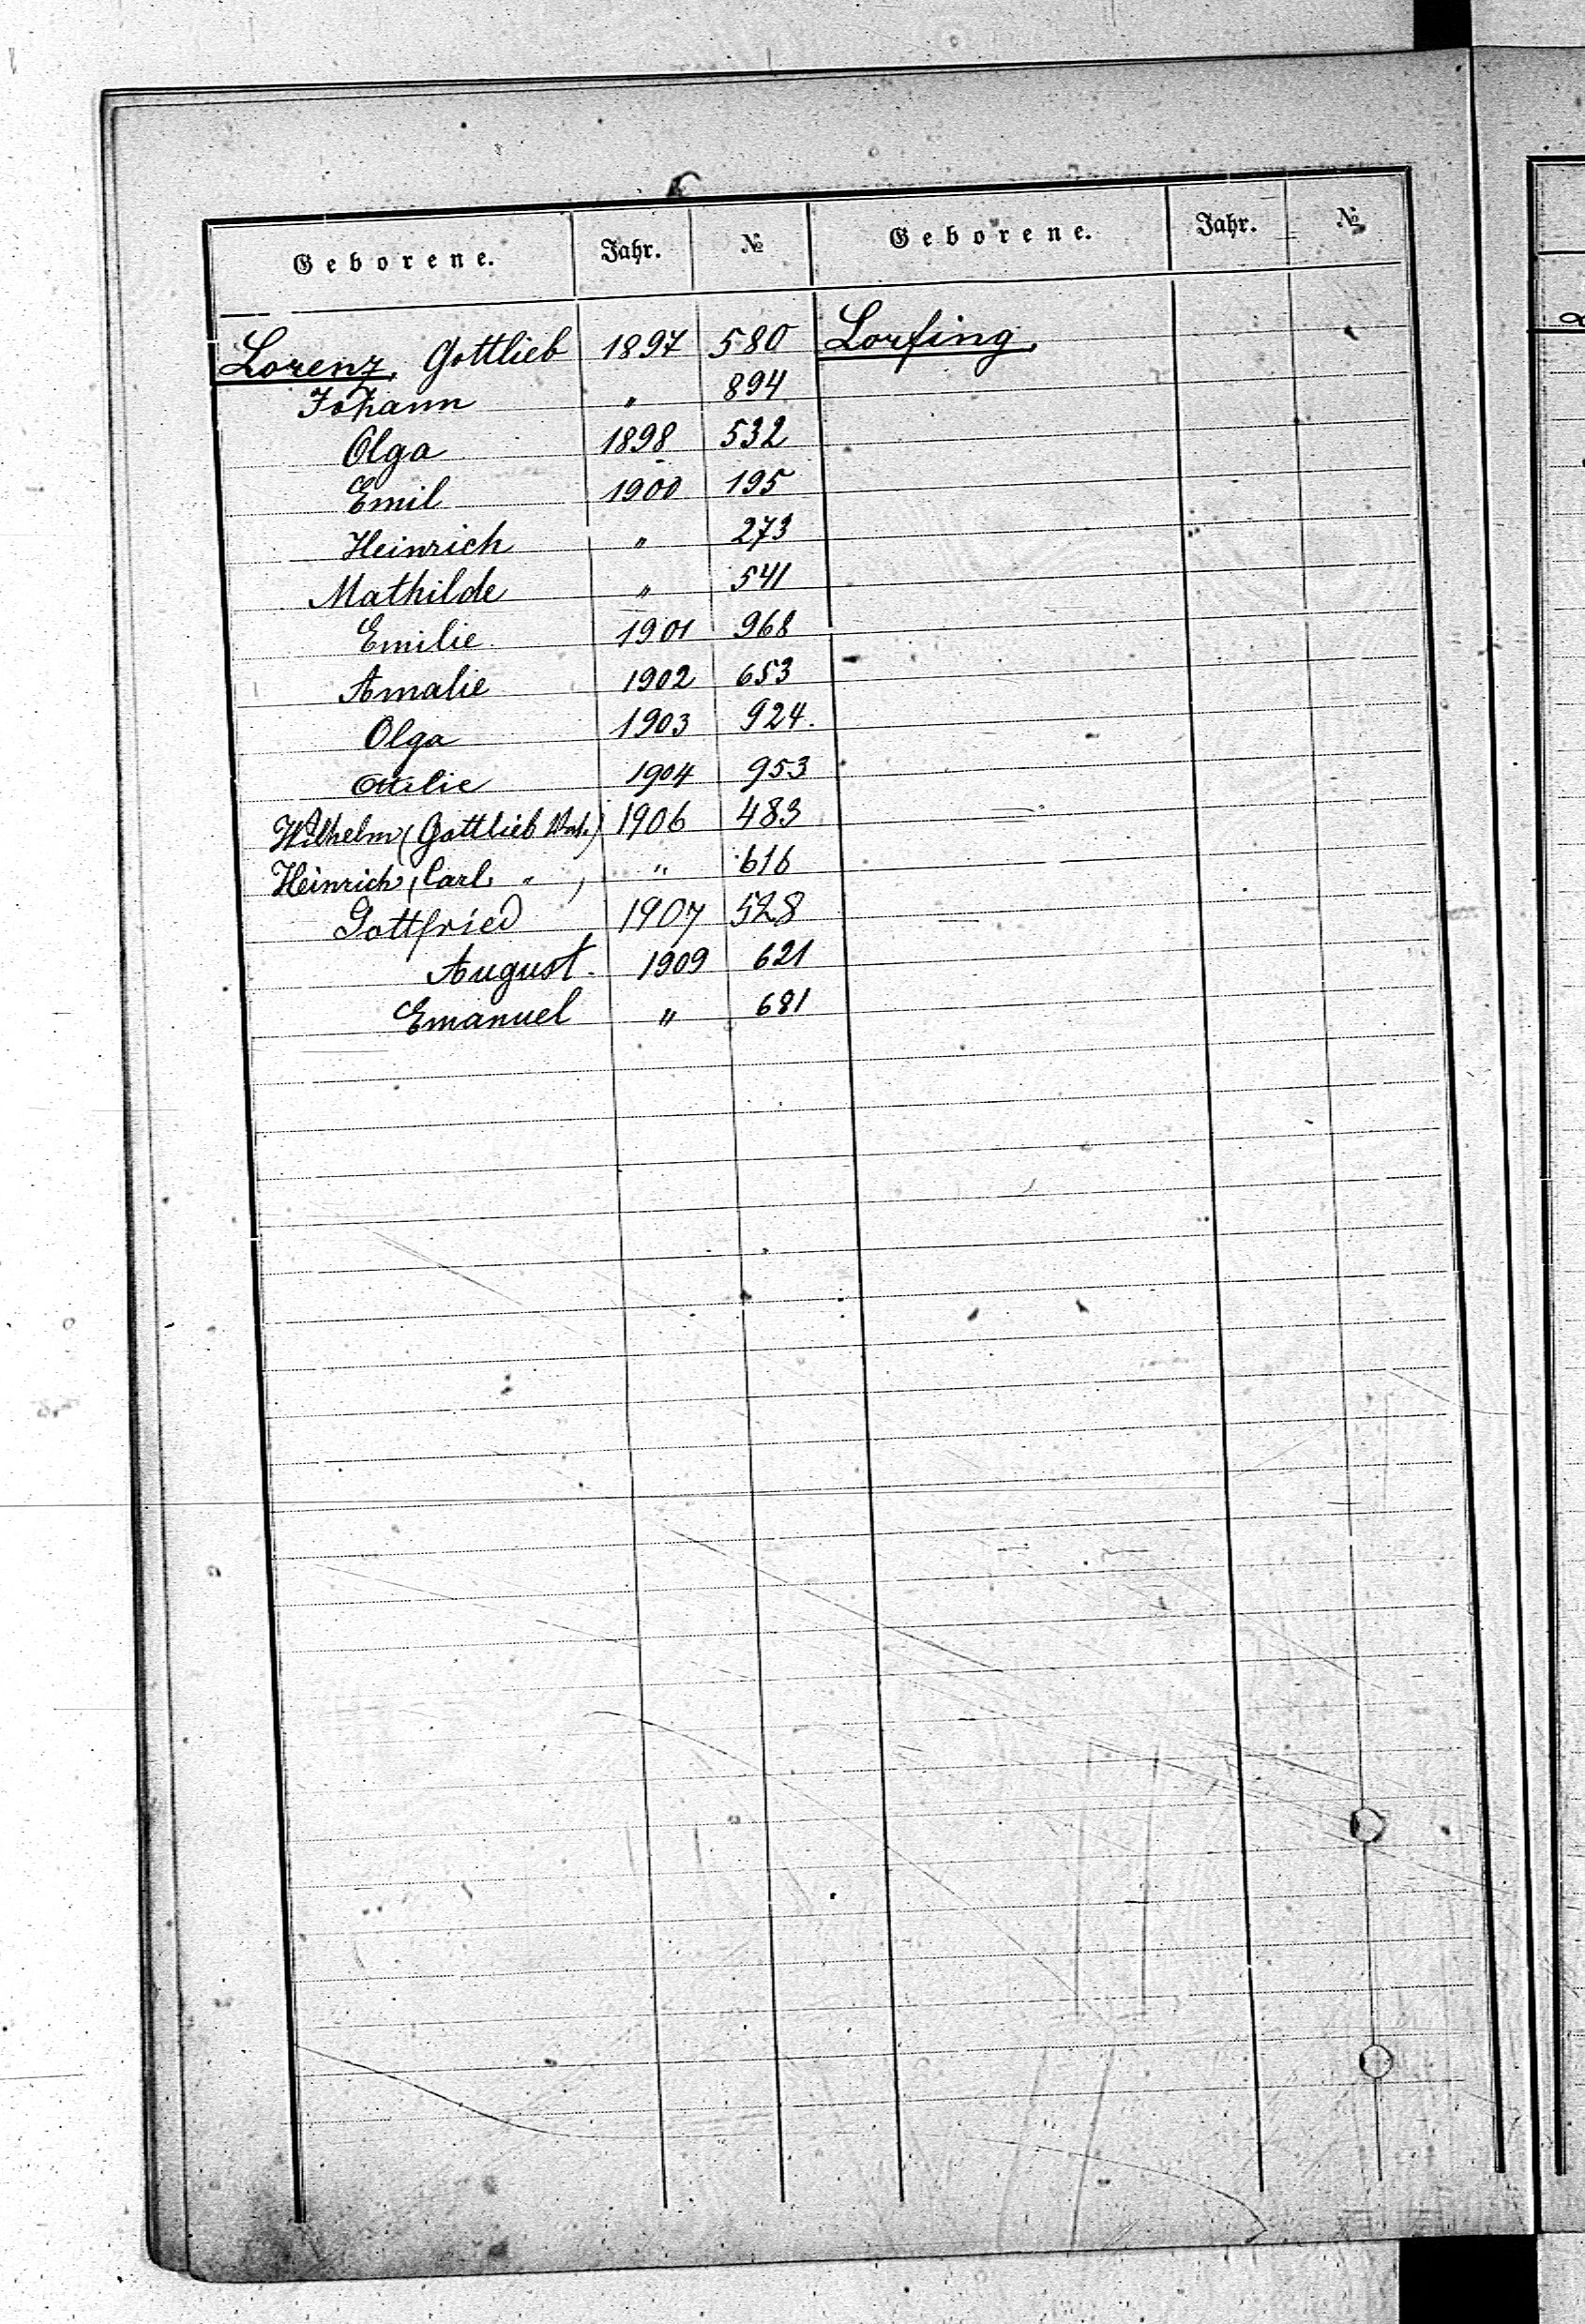 Geborene. Jahr. № Geborene. Jahr. №
Lorenz, Gottlieb 1897 580 Lorfing,
Johann " 894
Olga 1898 532
Emil 1900 195
Heinrich " 273
Mathilde " 541
Emilie 1901 968
Amalie 1902 653
Olga 1903 924.
Ottilie 1904 953
Wilhelm (Gottlieb Vat.) 1906 483
Heinrich (Carl " ) " 616
Gottfried 1907 528
August. 1909 621
Emanuel " 681